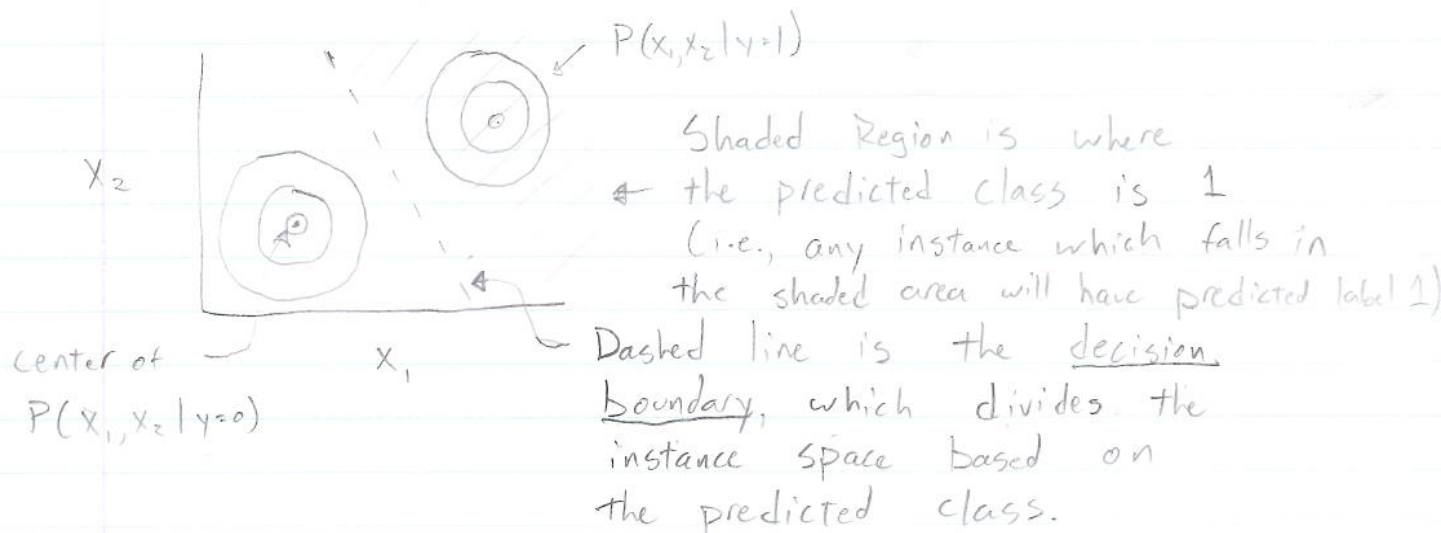 P(x₁,x₂|y=1)
Shaded Region is where
the predicted class is 1
(i.e., any instance which falls in
the shaded area will have predicted label 1)
X₂
X₁
center of
P(x₁,x₂|y=0)
Dashed line is the decision
boundary, which divides the
instance space based on
the predicted class.